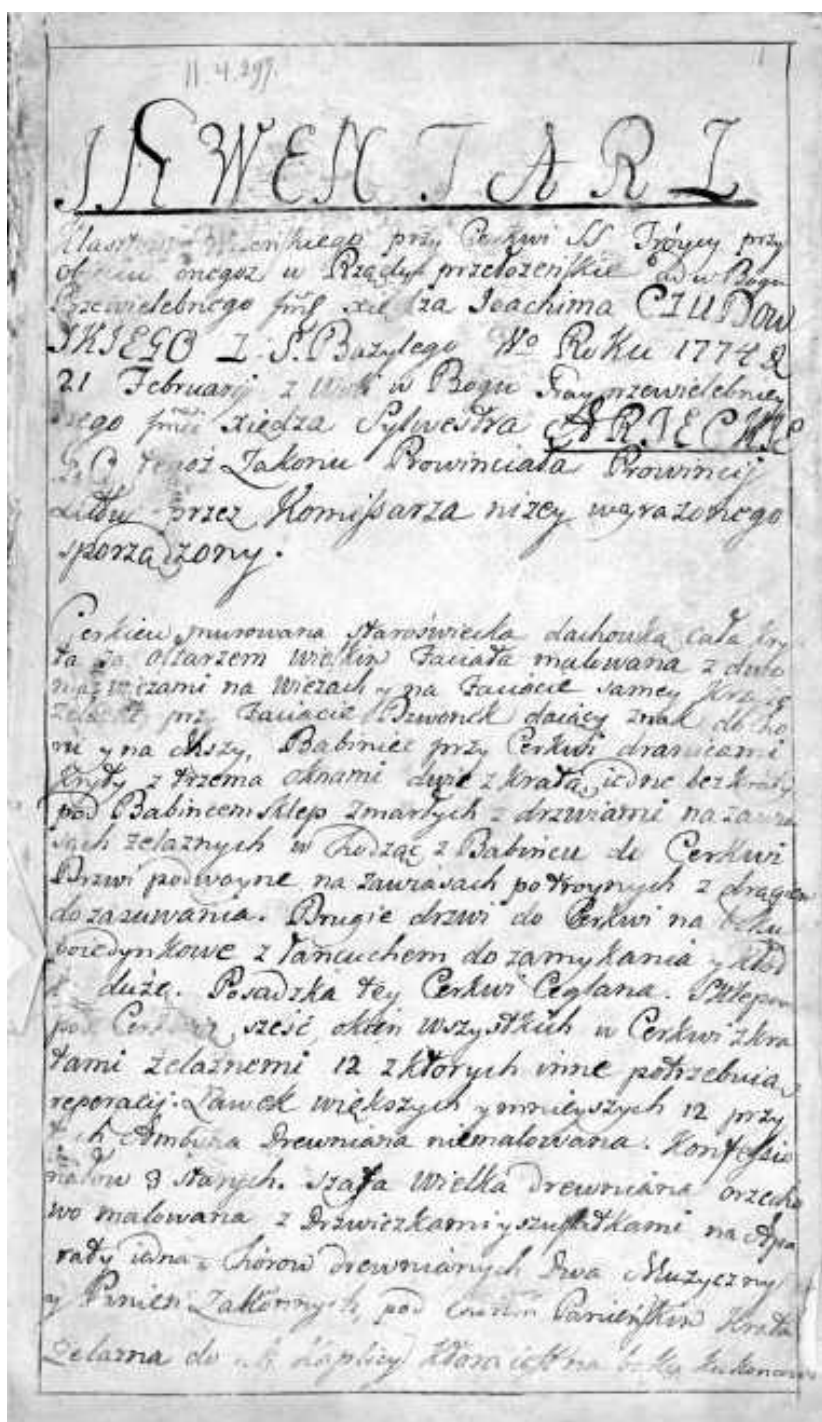 11.4.299.
INWENTARZ
Klasztoru przy Cerkwi SS Tróycy przy
onegoż w Rządy przełożeńskie w Bogu
Przewielebnego xiędza Joachima CZUDOW
SKIEGO Z. S. Bazylego Wo Roku 1774 
21 Februarij z Woli w Bogu Nayprzewielebniey
szego xiędza Sylwestra ARTECKIE
GO tegoż Zakonu Prowinciała Prowincij
Litew przez Komissarza niżey wyrażonego
sporządzony.
Cerkiew murowana staroświecka dachowką cała kry
ta za ołtarzem wielkim Faciata malowana z dwie
ma wieżami na wieżach y na Faciacie samey krzyże
żelazne przy Faciacie Dzwonek daiący znak do cho
ru y na Mszy, Babiniec przy Cerkwi dranicami
kryty z trzema oknami dwie z kratą, iedne bez kraty
pod Babincem sklep zmarłych z drzwiami na zawia
sach żelaznych w chodząc z Babińcu do Cerkwi
Drzwi podwoyne na zawiasach potroynych z drągiem
do zasuwania. Drugie drzwi do Cerkwi na boku
poiedynkowe z łańcuchem do zamykania y kłod
k duże. Posadzka tey Cerkwi Ceglana. Sklepow
pod Cerkwią sześć, okien wszystkich w Cerkwi z kra
tami żelaznemi 12 z których inne potrzebuią
reperacij. Ławek większych y mnieyszych 12 przy
tych Ambona Drewniana niemalowana. Konfessio
nałow 3 starych. Szafa Wielka Drewniana orzecho
wo malowana z Drzwiczkami y szufladkami na Apa
raty iedna. Chórow drewnianych Dwa Muzyczny
y Panien Zakonnych, pod Chorem Panieńskim Krata
Żelazna do Kaplicy która iest na boku